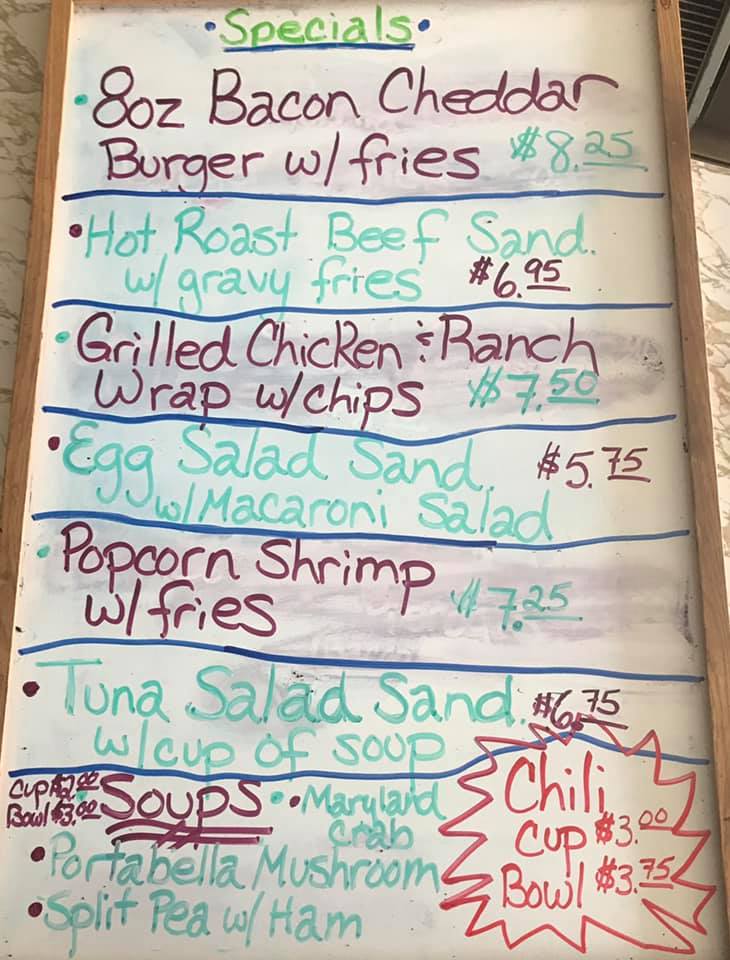 • Specials •
• 8oz Bacon Cheddar
Burger w/ fries $8.25
• Hot Roast Beef Sand.
w/ gravy fries $6.95
• Grilled Chicken & Ranch
Wrap w/ chips $7.50
• Egg Salad Sand. $5.75
w/ Macaroni Salad
• Popcorn Shrimp
w/ fries $7.25
• Tuna Salad Sand. $6.75
w/ cup of soup
Cup $2.00
Bowl $3.00
Soups • • Maryland
Crab
• Portabella Mushroom
• Split Pea w/ Ham
Chili
Cup $3.00
Bowl $3.75